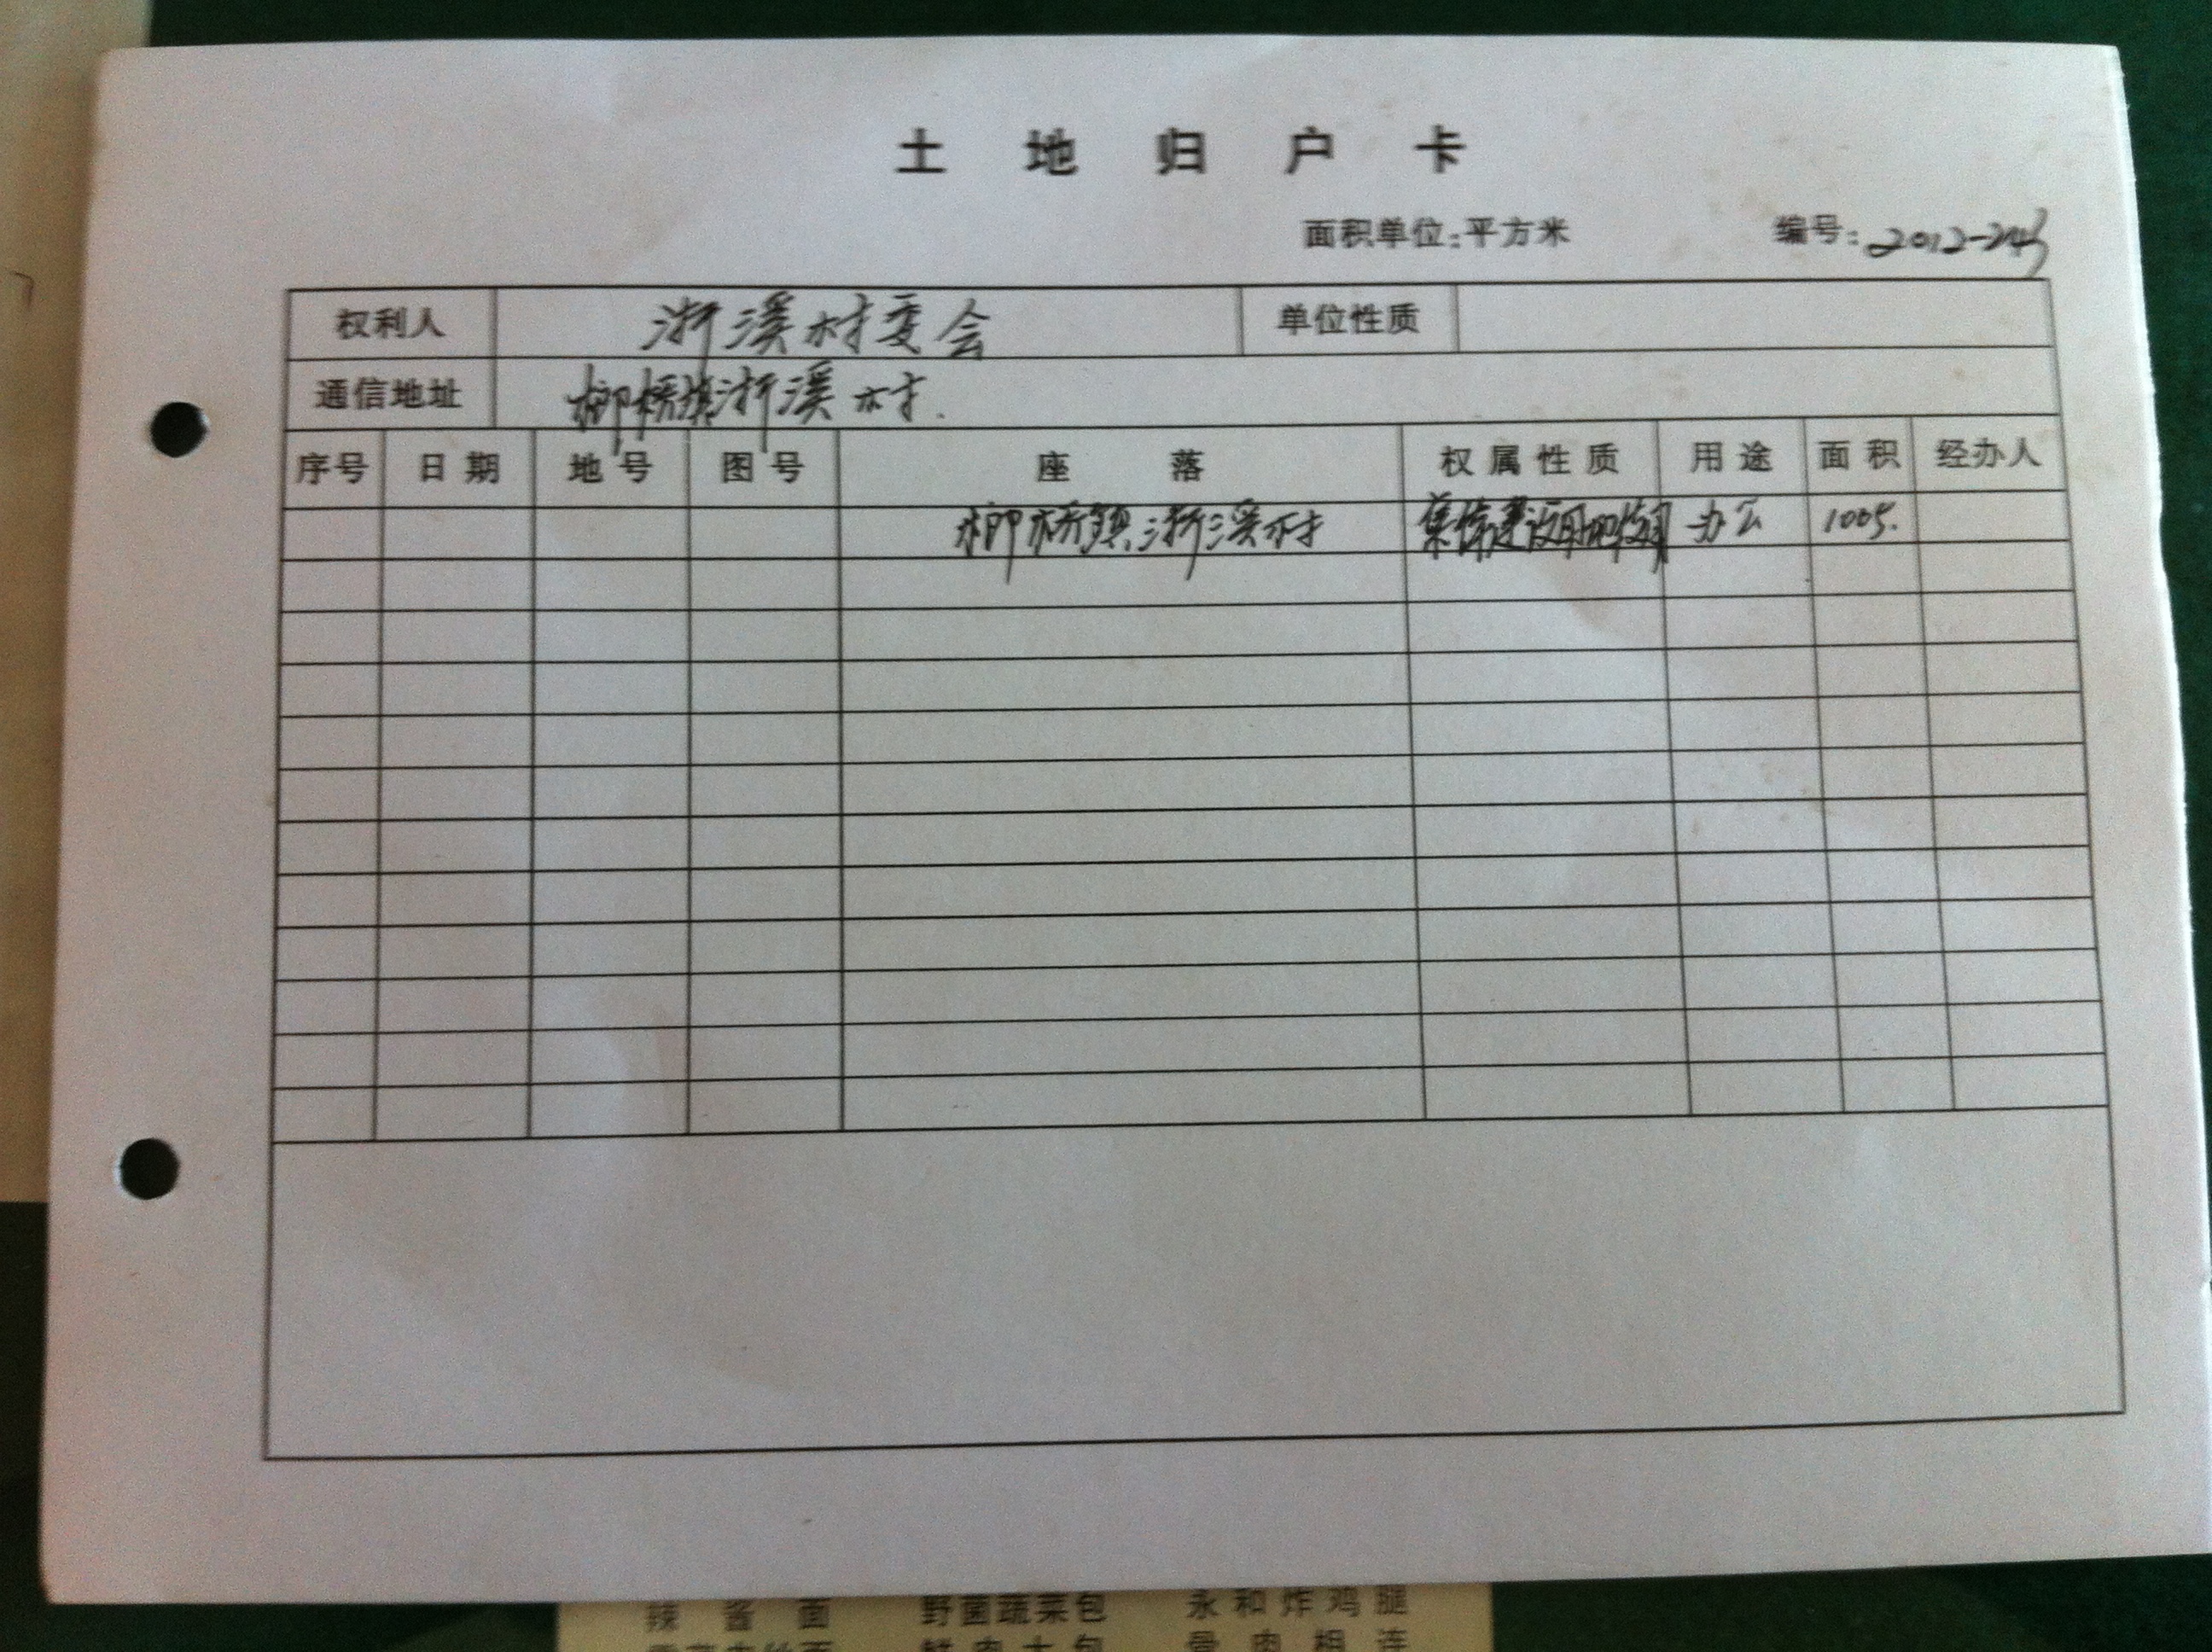 土地归户卡
面积单位:平方米 编号:2012-243
权利人 浙溪村委会 单位性质
通信地址 柳桥镇浙溪村.
序号 日期 地号 图号 座落 权属性质 用途 面积 经办人
柳桥镇浙溪村 集体建设用地使用 办公 1005.
辣酱面 野菌蔬菜包 永和炸鸡腿
鲜肉大包 骨肉相连